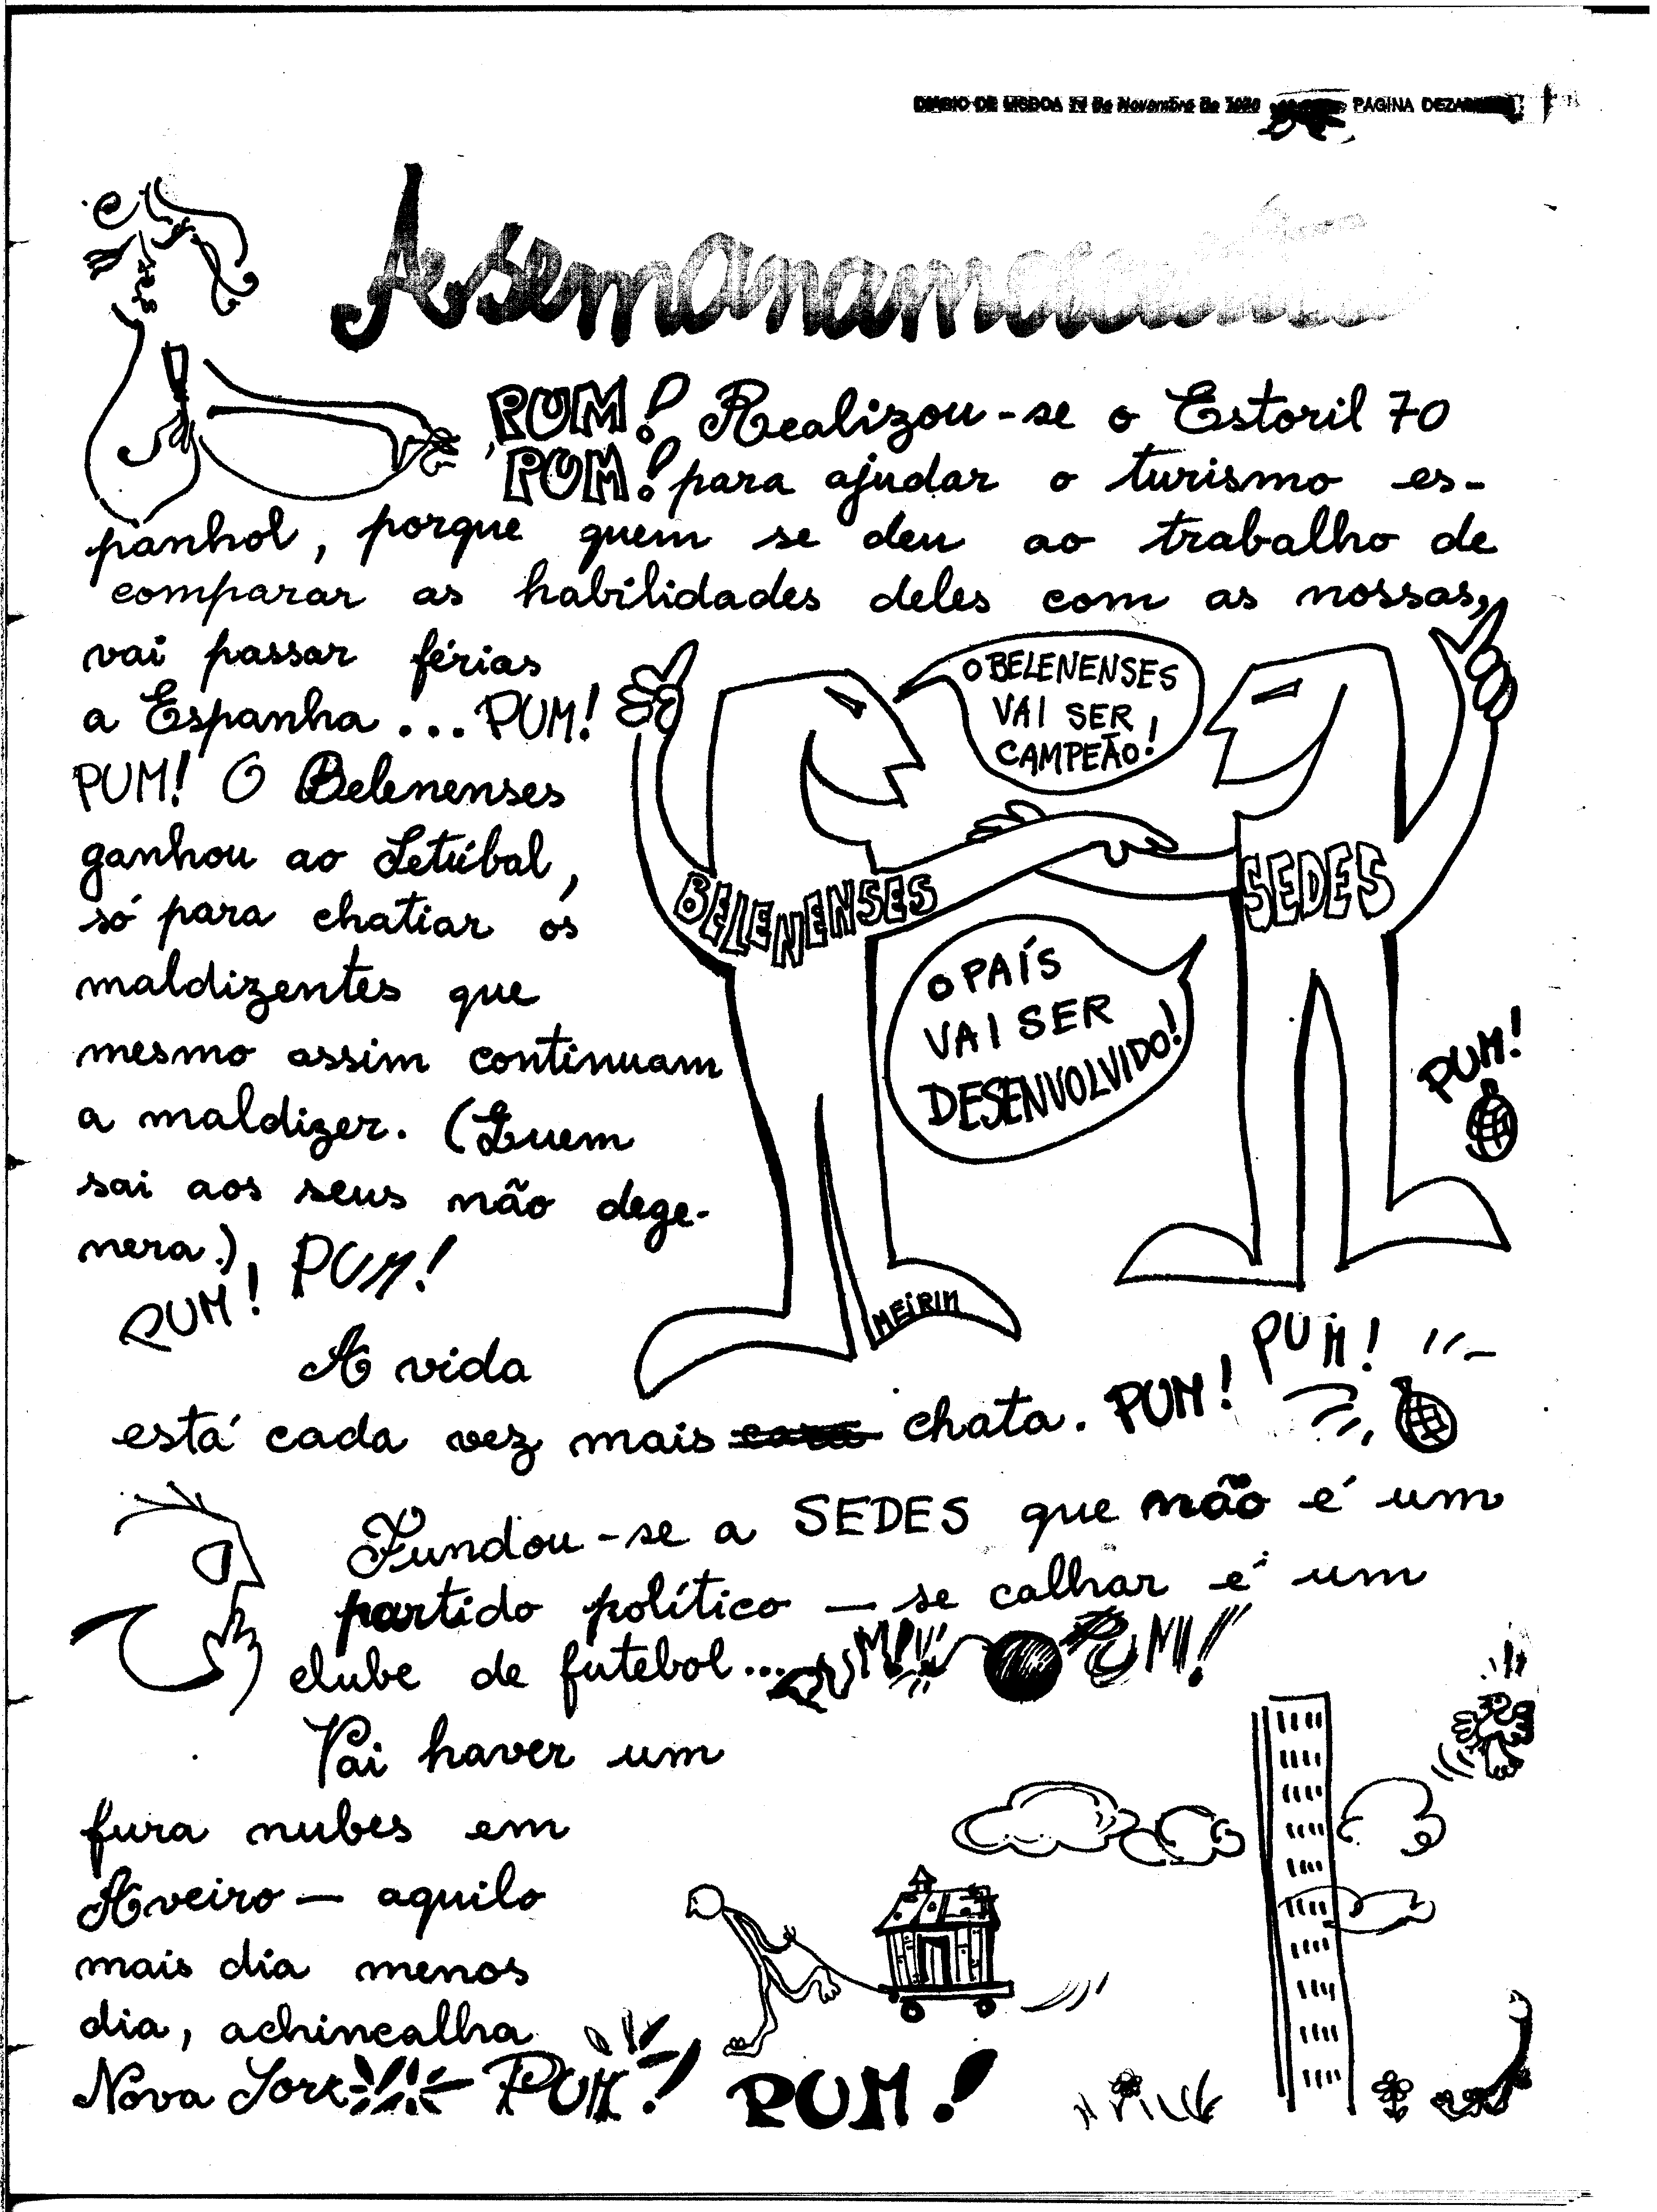 DIÁRIO DE LISBOA de Novembro de PÁGINA
A semana
PUM! Realizou-se o Estoril 70
PUM! para ajudar o turismo es-
panhol, porque quem se deu ao trabalho de
comparar as habilidades deles com as nossas,
vai passar férias
a Espanha... PUM!
PUM! O Belenenses
ganhou ao Setúbal,
só para chatiar os
maldizentes que
mesmo assim continuam
a maldizer. (Quem
sai aos seus não dege-
nera.)
PUM! PUM!
O BELENENSES
VAI SER
CAMPEÃO!
BELENENSES
SEDES
O PAÍS
VAI SER
DESENVOLVIDO!
PUM!
MEIRIM
A vida
está cada vez mais cara chata. PUM! PUM!
Fundou-se a SEDES que não é um
partido político — se calhar é um
clube de futebol... PUM! PUM!
Vai haver um
fura nubes em
Aveiro — aquilo
mais dia menos
dia, achincalha
Nova Iork PUM! PUM!